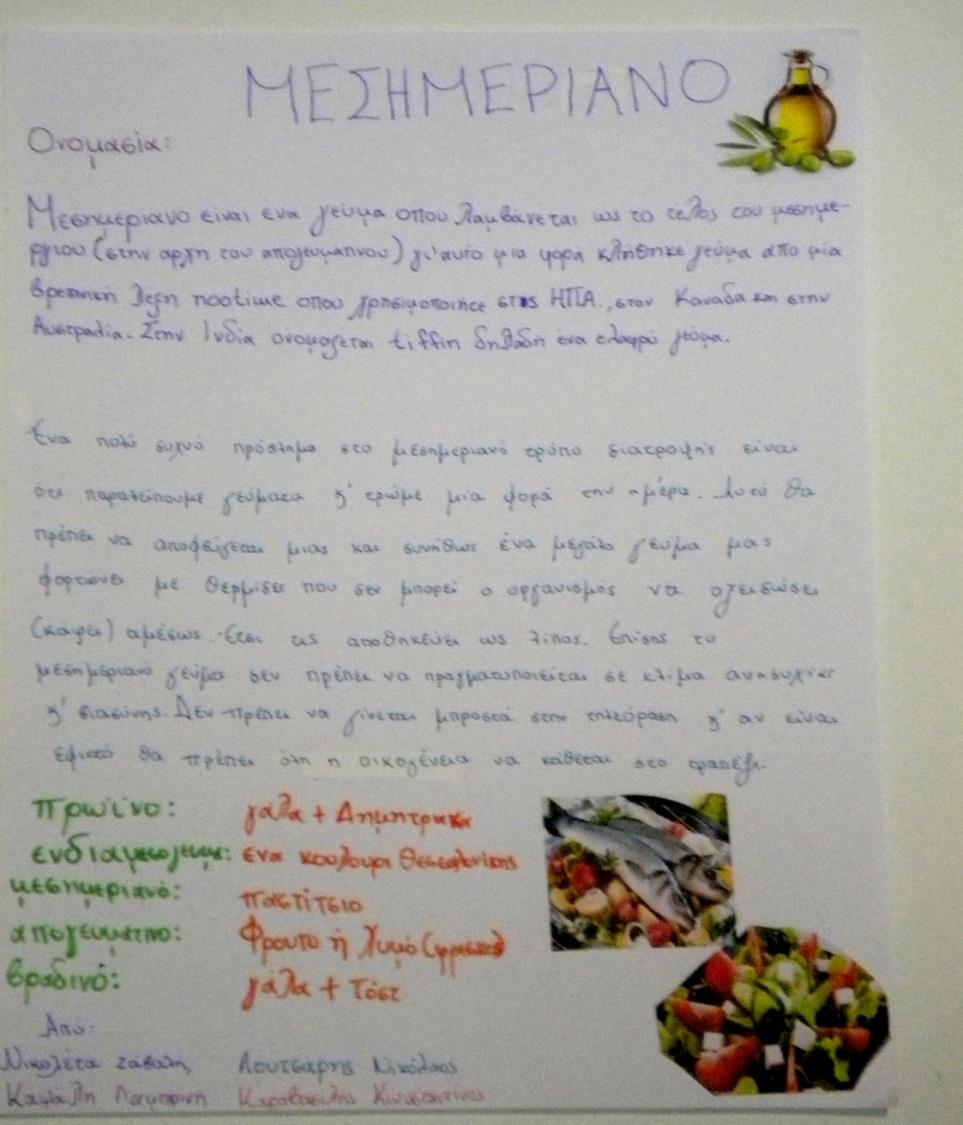 ΜΕΣΗΜΕΡΙΑΝΟ
Ονομασία:
Μεσημεριανο είναι ενα γεύμα οπου λαμβάνεται ως το τέλος του μεσημε-
ργιου (στην αρχή του απογευματινου) γι'αυτο μια φορά κλήθηκε γεύμα απο μία
βρετανική λεξη nootime οπου χρησιμοποιήσε στις ΗΠΑ., στον Καναδα και στην
Αυστραλια. Στην Ινδία ονομαζεται tiffin δηλαδή ένα ελαφρύ γεύμα.
Ένα πολύ συχνό πρόβλημα στο μεσημεριανό τρόπο διατροφής είναι
οτι παραλείπουμε γεύματα κ' τρώμε μία φορά την ημέρα. Αυτό θα
πρέπει να αποφεύγεται μιας και συνήθως ένα μεγάλο γεύμα μας
φορτώνει με θερμίδες που δεν μπορεί ο οργανισμός να οξειδώσει
(κάψει) αμέσως. Έτσι τις αποθηκεύει ως λίπος. Επίσης το
μεσημεριανό γεύμα δεν πρέπει να πραγματοποιείται σε κλίμα ανησυχίας
κ' βιασύνης. Δεν πρέπει να γίνεται μπροστά στην τηλεόραση κ' αν είναι
εφικτό θα πρέπει όλη η οικογένεια να κάθεται στο τραπέζι.
πρωϊνο: γαλα + Δημητριακα
ενδιαμεσογευμα: ενα κουλουρι Θεσσαλονίκης
μεσημεριανό: παστίτσιο
απογευματινο: Φρουτο ή Χυμό (φρεσκο)
βραδινό: γάλα + Τόστ
Από:
Νικολέτα Λουτσάρης Νικόλαος
Καραβασίλης Κωνσταντίνος